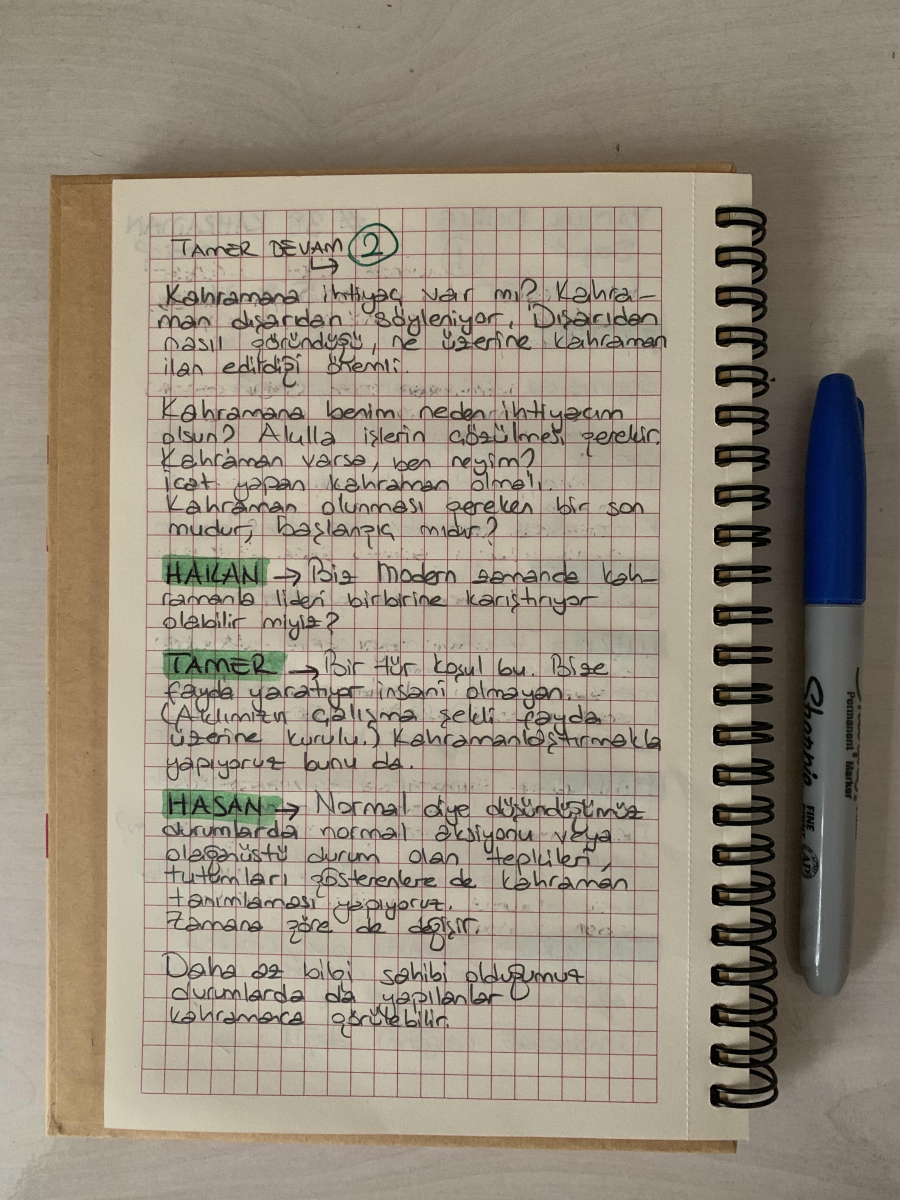 TAMER DEVAM 2
Kahramana ihtiyaç var mı? Kahra-
man dışarıdan söyleniyor. Dışarıdan
nasıl göründüğü, ne üzerine kahraman
ilan edildiği önemli.
Kahramana benim neden ihtiyacım
olsun? Akılla işlerin çözülmesi gerekir.
Kahraman varsa, ben neyim?
İcat yapan kahraman olmalı.
Kahraman olunması gereken bir son
mudur, başlangıç mıdır?
HAKAN → Biz modern zamanda kah-
ramanla lideri birbirine karıştırıyor
olabilir miyiz?
TAMER → Bir tür koşul bu. Bize
fayda yaratıyor insani olmayan.
(Aklımızın çalışma şekli fayda
üzerine kurulu.) Kahramanlaştırmakla
yapıyoruz bunu da.
HASAN → Normal diye düşündüğümüz
durumlarda normal aksiyonu veya
olağanüstü durum olan tepkileri,
tutumları gösterenlere de kahraman
tanımlaması yapıyoruz.
Zamana göre de değişir.
Daha az bilgi sahibi olduğumuz
durumlarda da yapılanlar
kahramanca görülebilir.
Sharpie
Permanent Marker
FINE